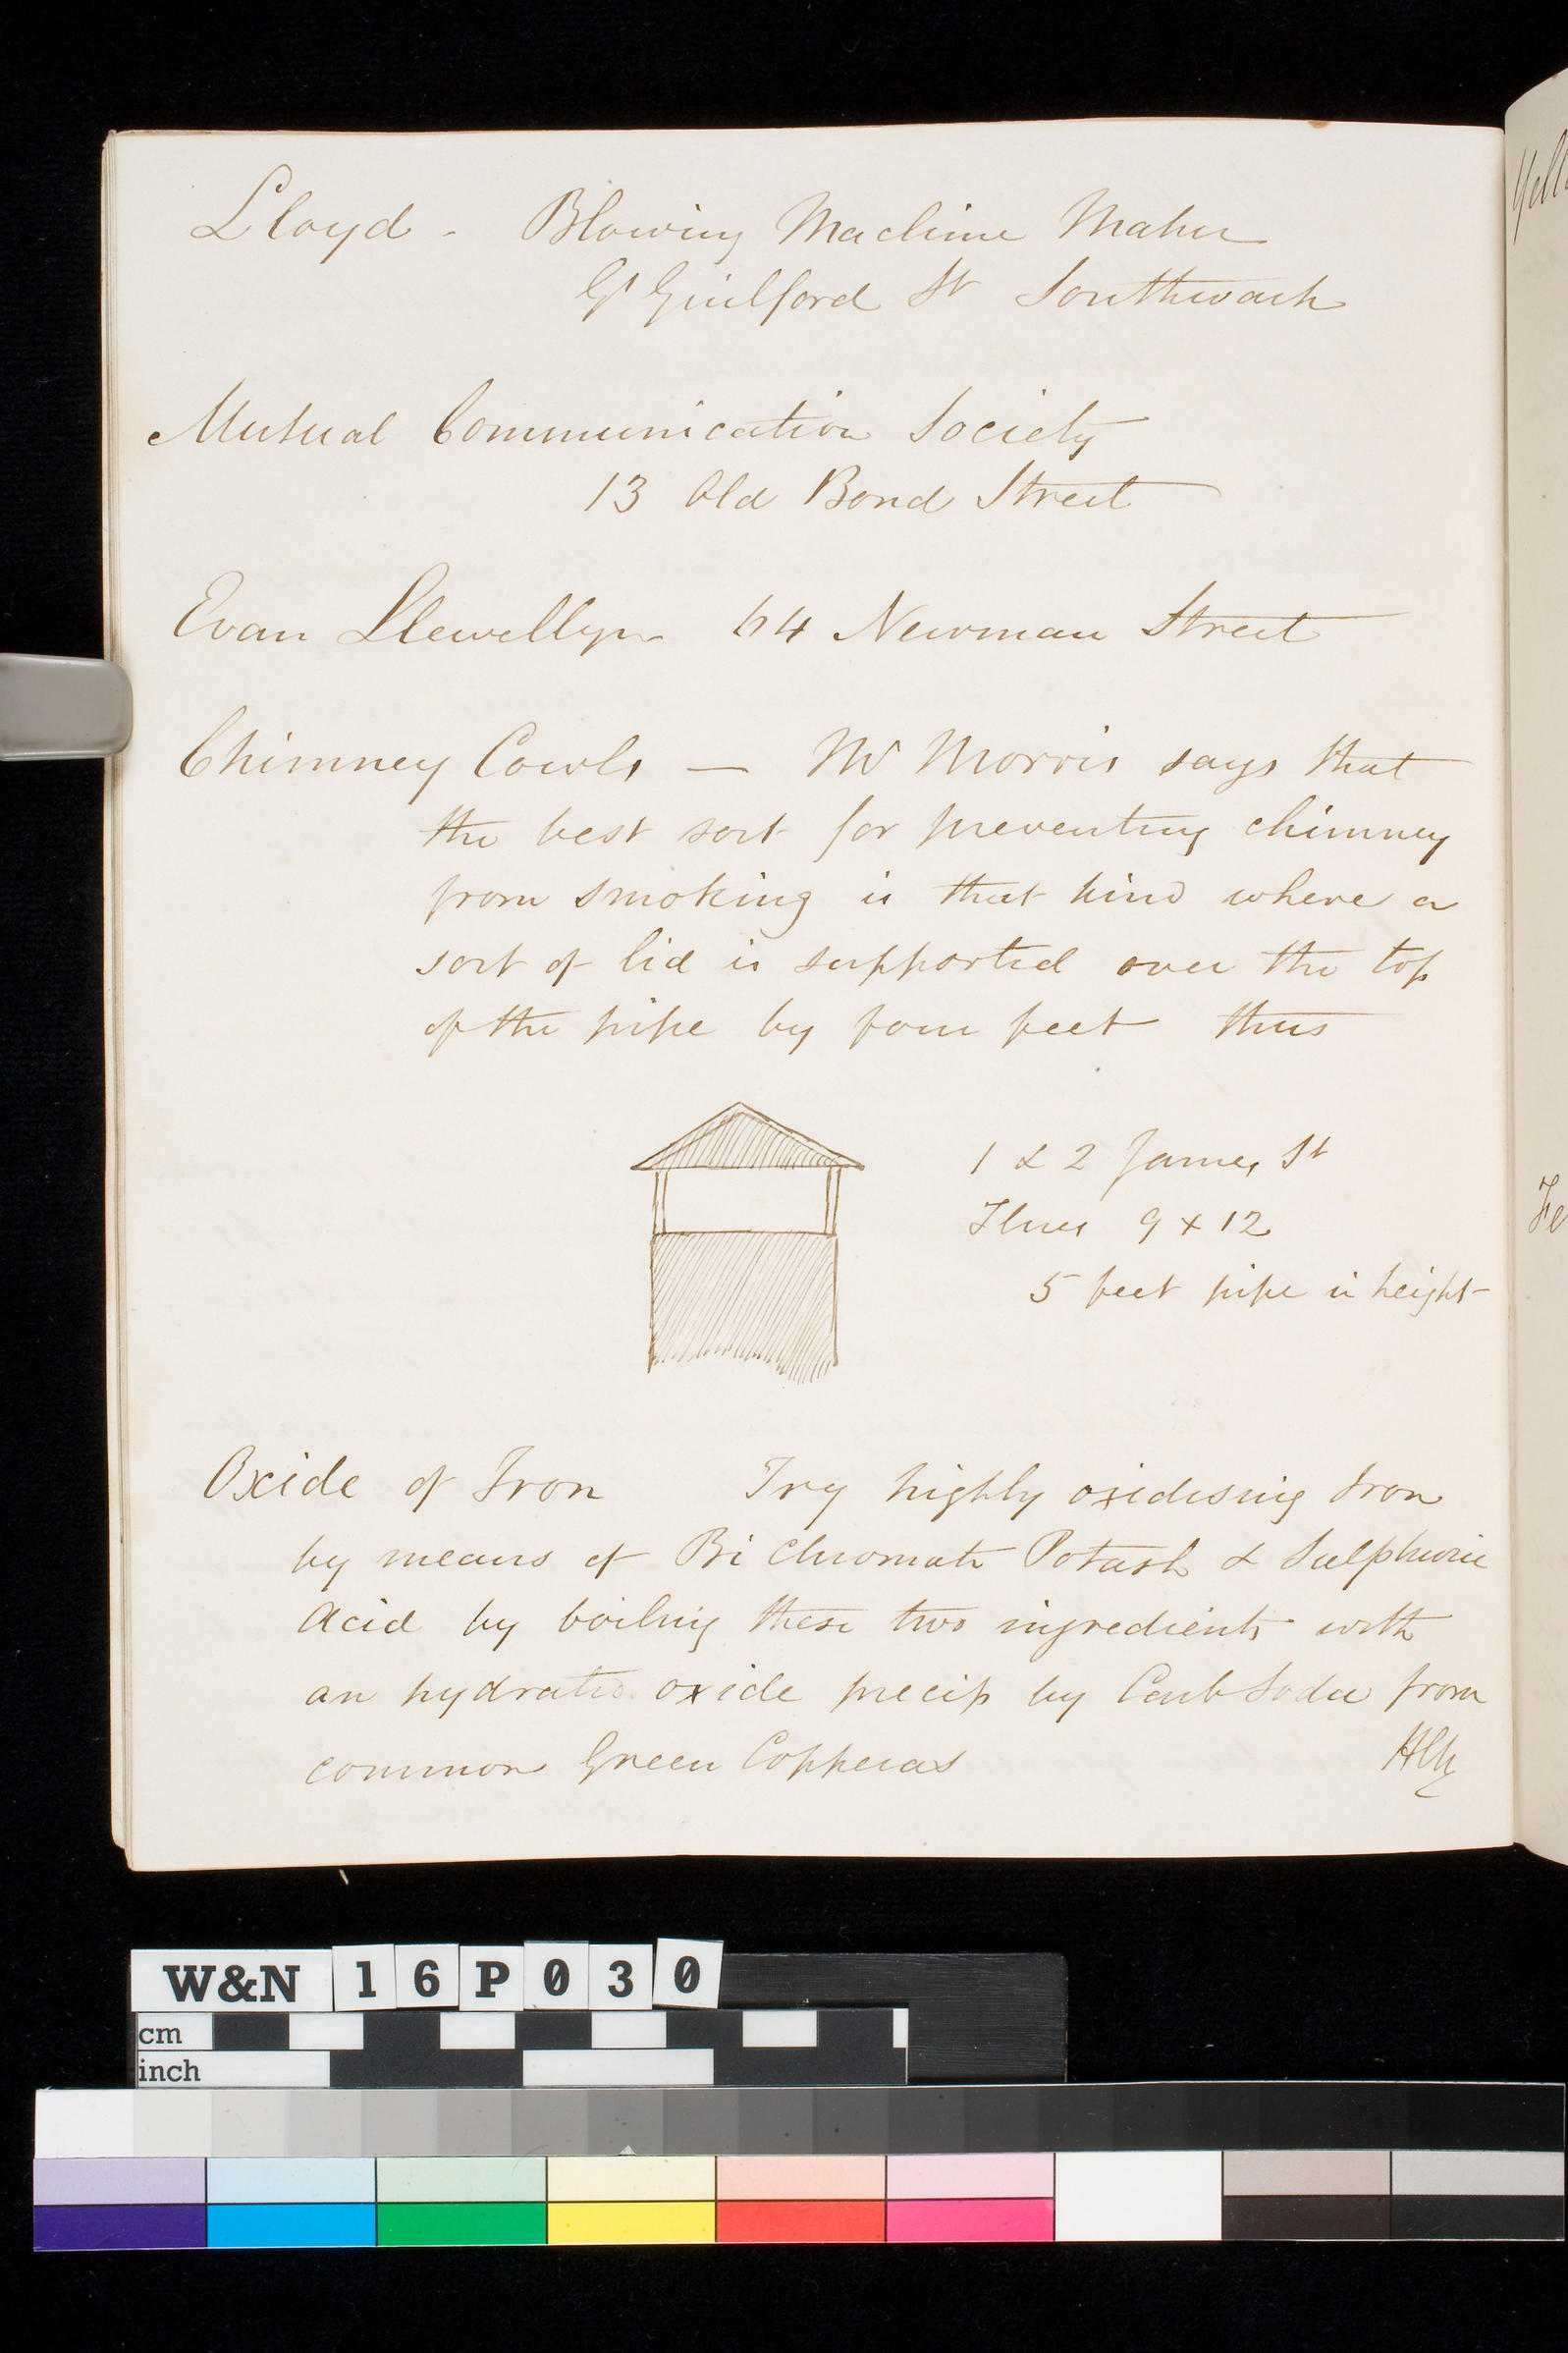 Lloyd - Blowing Machine Maker
Gt Guilford St Southwark
Mutual Communication Society
13 Old Bond Street
Evan Llewellyn 64 Newman Street
Chimney Cowls — Mr Morris says that
the best sort for preventing chimney
from smoking is that kind where a
sort of lid is supported over the top
of the pipe by four feet thus
1 & 2 James St
Flues 9 x 12
5 feet pipe in height
Oxide of Iron Try highly oxidising Iron
by means of Bi Chromate Potash & Sulphuric
Acid by boiling these two ingredients with
an hydratic oxide precip by Carb Soda from
common Green Copperas
W&N 16P030
cm
inch